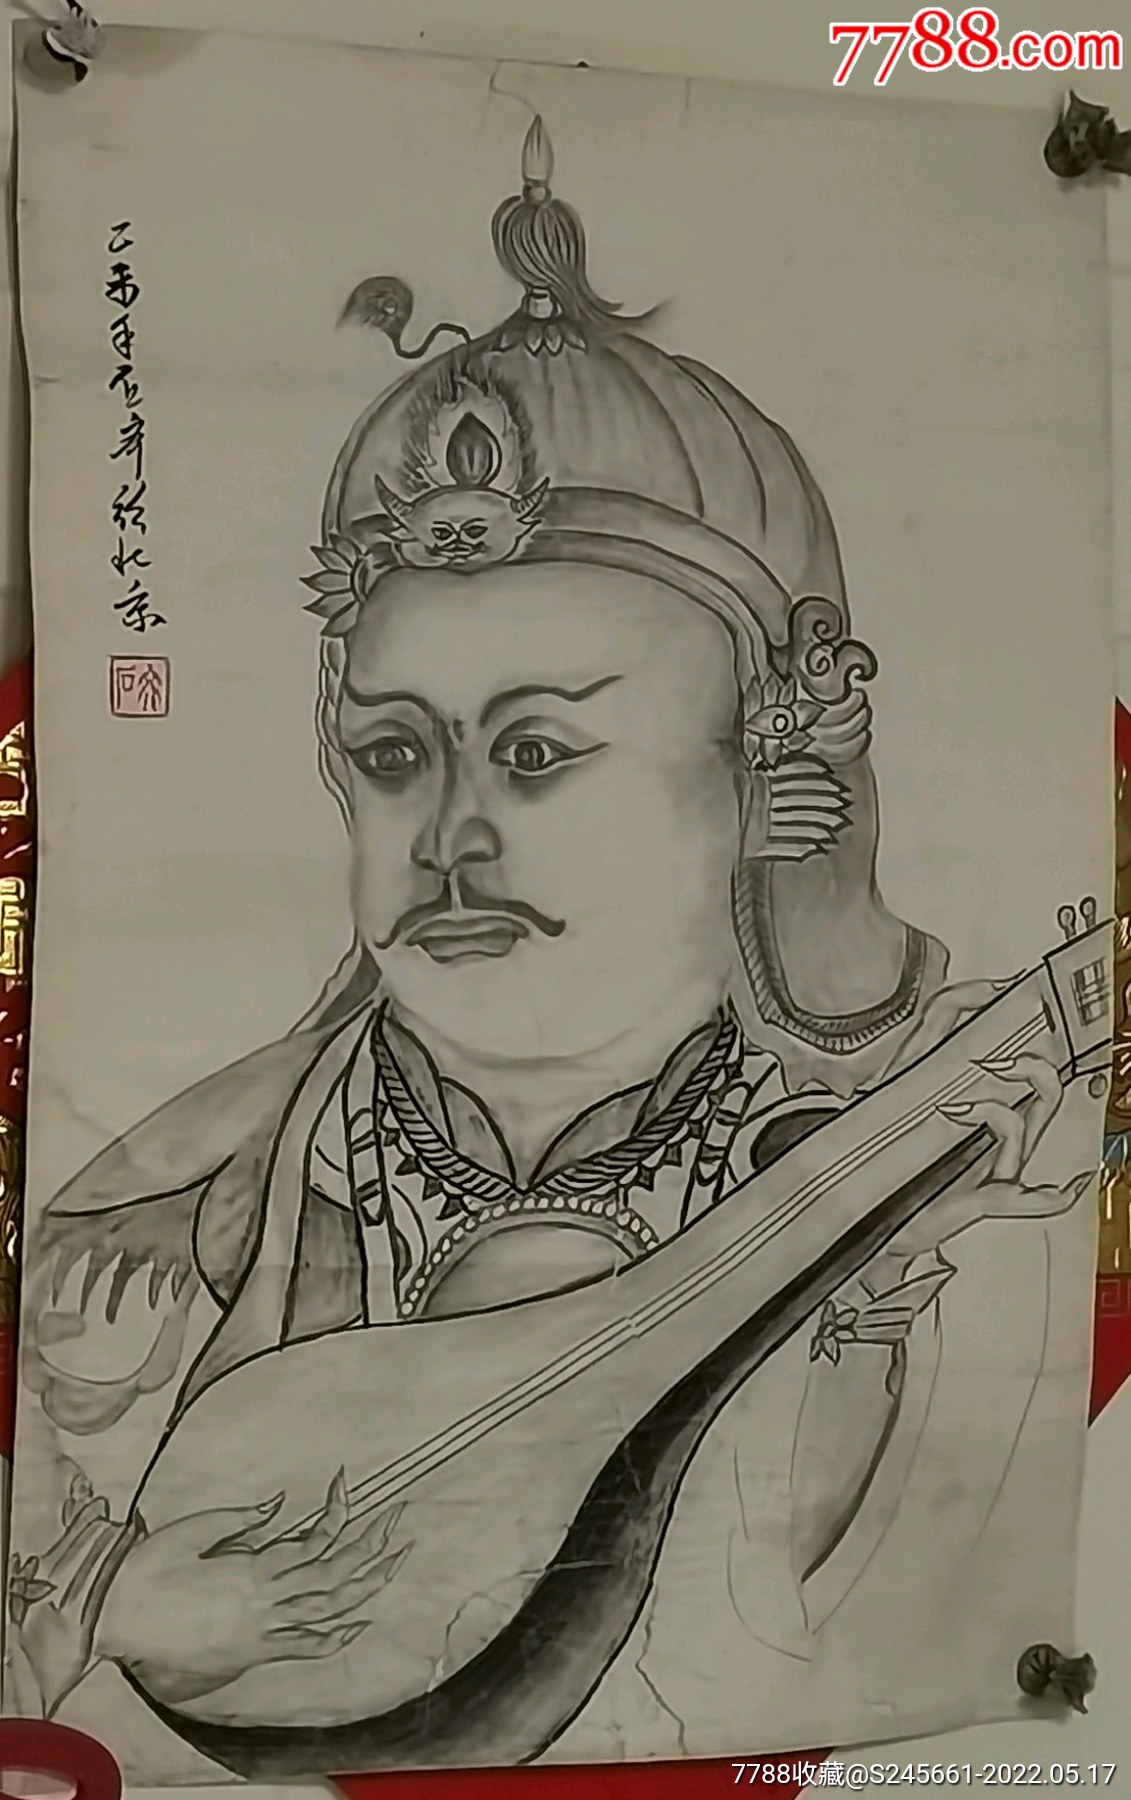 7788.com
乙未年石辛於北京
7788收藏@S245661-2022.05.17